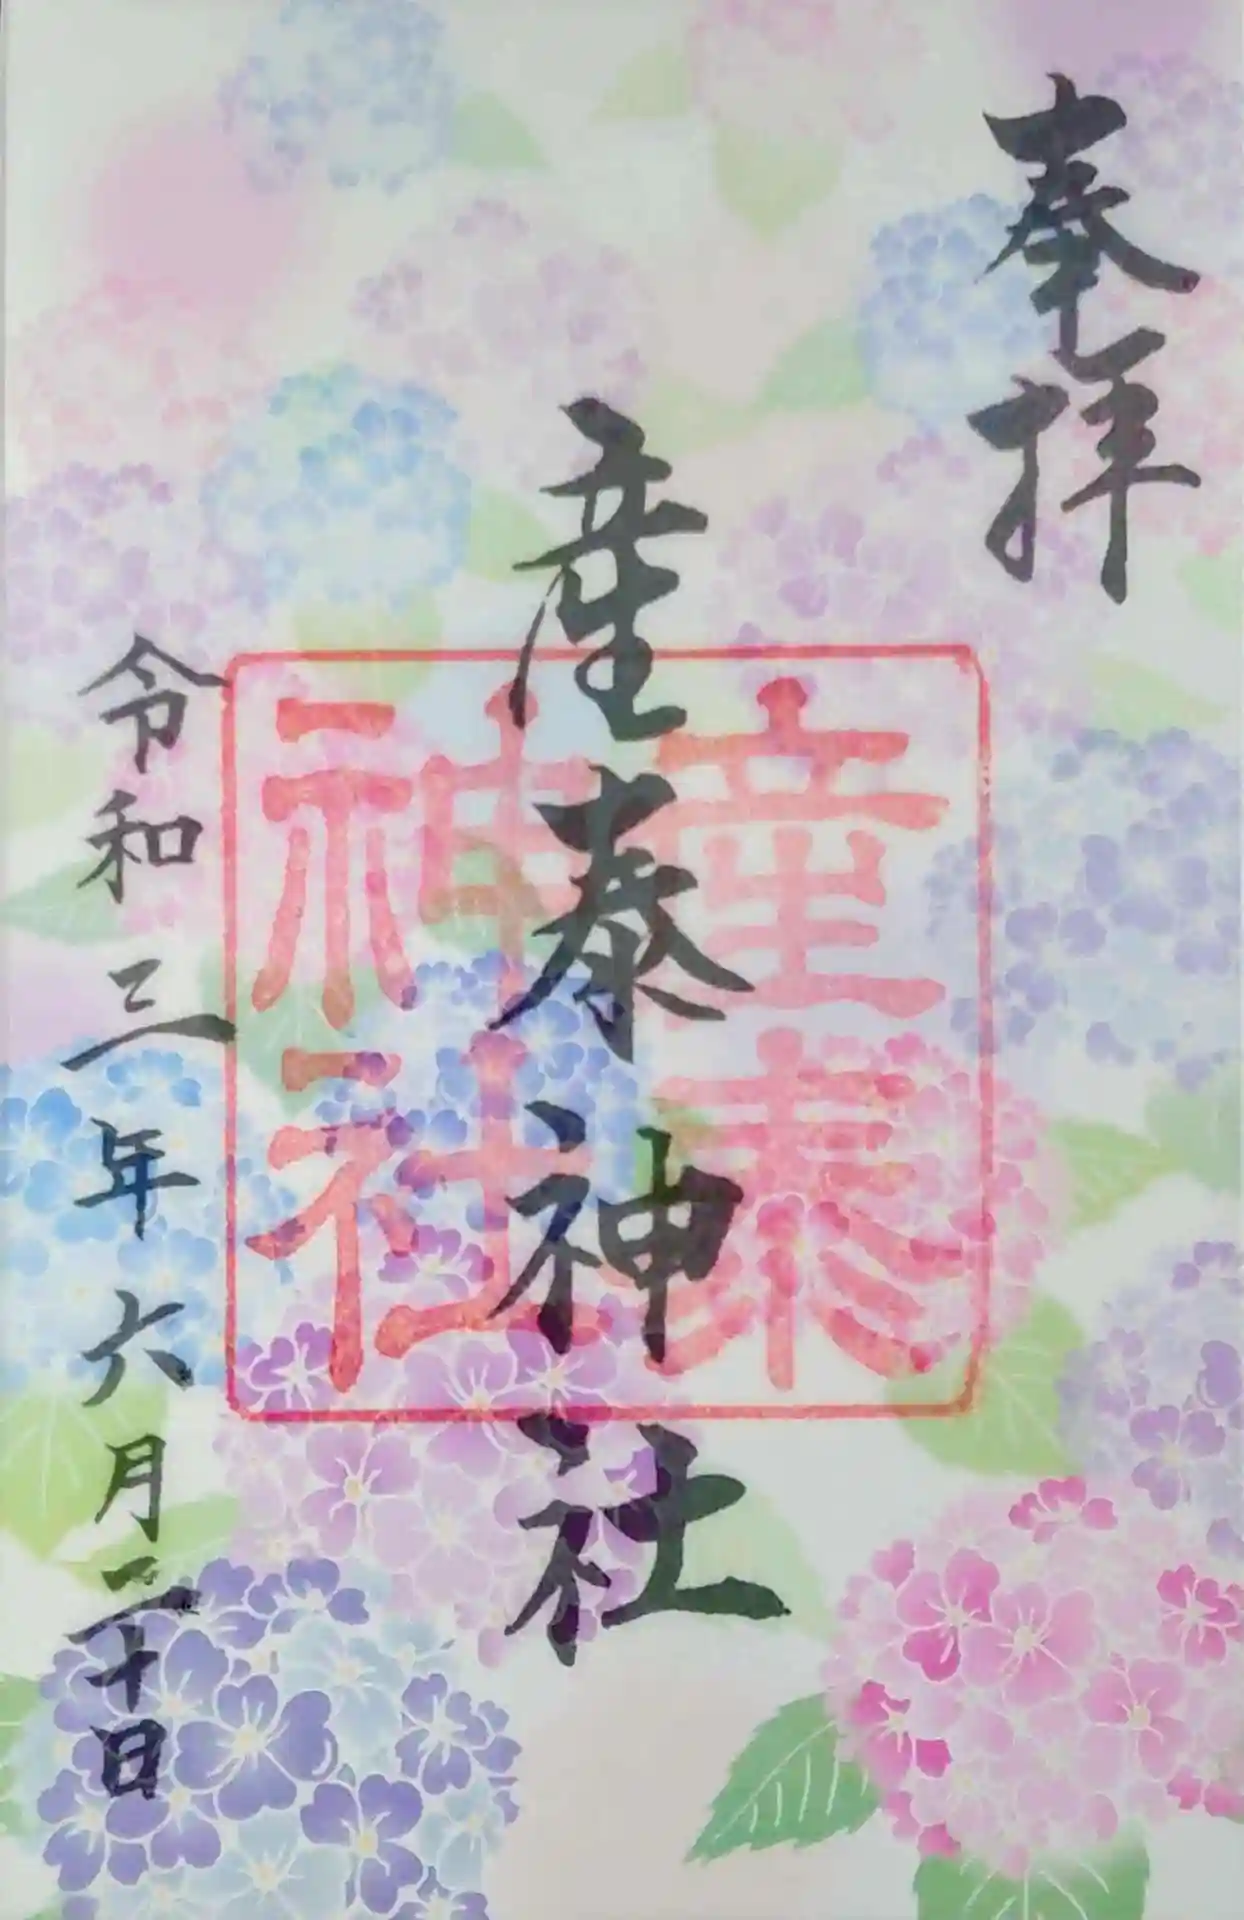 奉拝
産泰神社
産泰
神社
令和三年六月二十日